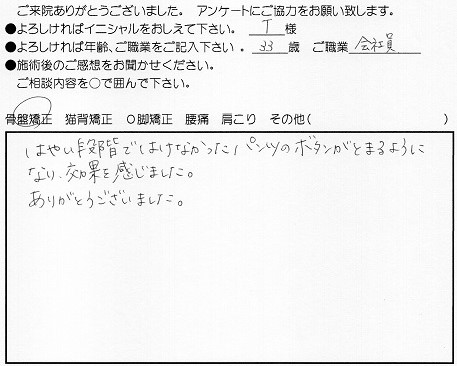 ご来院ありがとうございました。 アンケートにご協力をお願い致します。
●よろしければイニシャルをおしえて下さい。 T 様
●よろしければ年齢、ご職業をご記入下さい。 33 歳 ご職業 会社員
●施術後のご感想をお聞かせください。
ご相談内容を○で囲んで下さい。
骨盤矯正 猫背矯正 O脚矯正 腰痛 肩こり その他( )
はやい段階ではけなかったパンツのボタンがとまるように
なり、効果を感じました。
ありがとうございました。